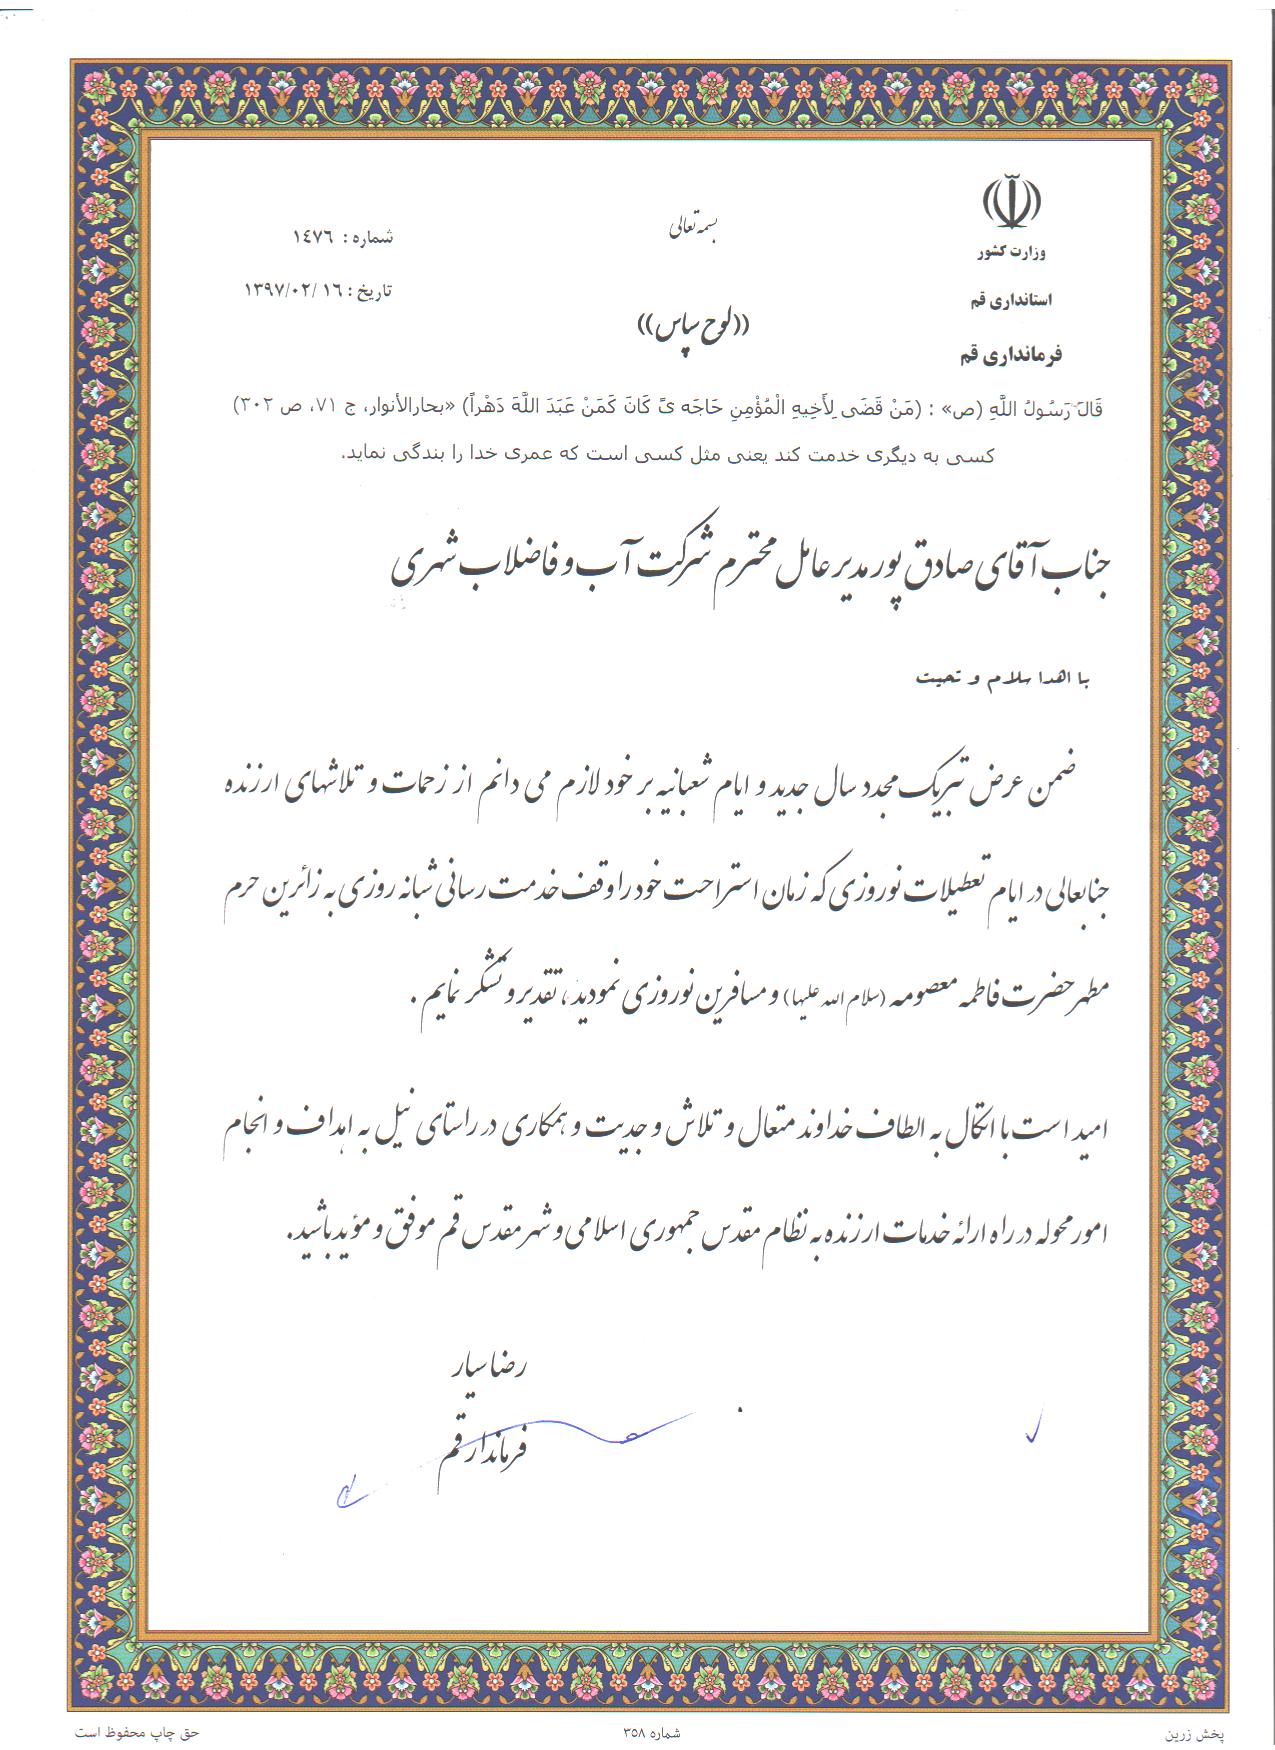 بسمه تعالی
وزارت کشور
استانداری قم
فرمانداری قم
شماره : ۱۴۷۶
تاریخ : ۱۳۹۷/۰۲/۱۶
((لوح سپاس))
قَالَ رَسُولُ اللَّهِ (ص» : (مَنْ قَضَی لِأَخِیهِ الْمُؤْمِنِ حَاجَه یً کَانَ کَمَنْ عَبَدَ اللَّهَ دَهْراً) «بحارالأنوار، ج ۷۱، ص ۳۰۲)
کسی به دیگری خدمت کند یعنی مثل کسی است که عمری خدا را بندگی نماید.
جناب آقای صادق پور مدیرعامل محترم شرکت آب و فاضلاب شهری
با اهدا سلام و تحیت
ضمن عرض تبریک مجدد سال جدید و ایام شعبانیه بر خود لازم می دانم از زحمات و تلاشهای ارزنده
جنابعالی در ایام تعطیلات نوروزی که زمان استراحت خود را وقف خدمت رسانی شبانه روزی به زائرین حرم
مطهر حضرت فاطمه معصومه (سلام الله علیها) و مسافرین نوروزی نمودید، تقدیر و تشکر نمایم .
امید است با اتکال به الطاف خداوند متعال و تلاش و جدیت و همکاری در راستای نیل به اهداف و انجام
امور محوله در راه ارائه خدمات ارزنده به نظام مقدس جمهوری اسلامی و شهر مقدس قم موفق و مؤید باشید.
رضا سیار
فرماندار قم
پخش زرین
شماره ۳۵۸
حق چاپ محفوظ است